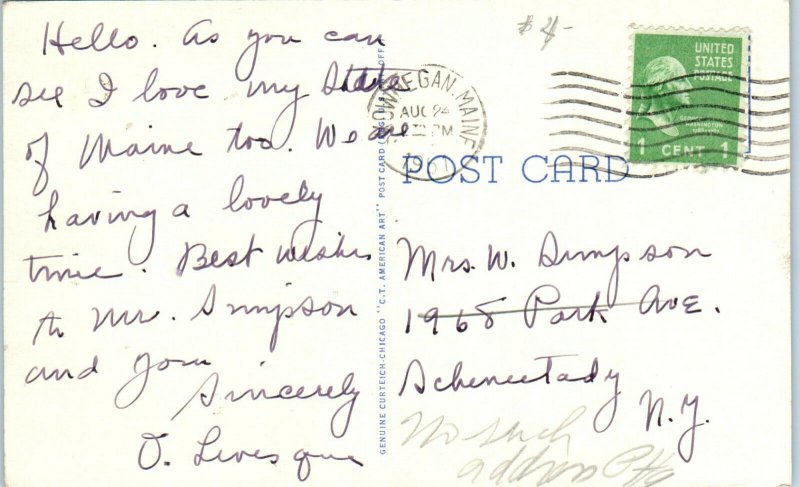 Hello. As you can
see I love my State
of Maine too. We are
having a lovely
time. Best wishes
to Mr. Simpson
and you
Sincerely
O. Levesque
GENUINE CURTEICH-CHICAGO "C.T. AMERICAN ART" POST CARD
$4-
SKOWHEGAN MAINE
AUG 24
PM
UNITED
STATES
POSTAGE
1 CENT 1
POST CARD
Mrs. W. Simpson
1968 Park Ave.
Schenectady
N.Y.
No such
address